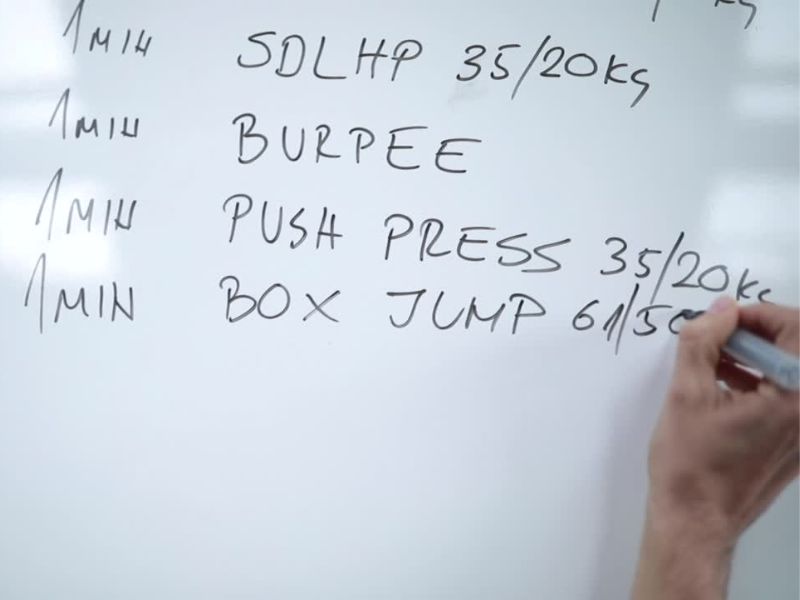 1 MIN SDLHP 35/20 KG
1 MIN BURPEE
1 MIN PUSH PRESS 35/20 KG
1 MIN BOX JUMP 61/50